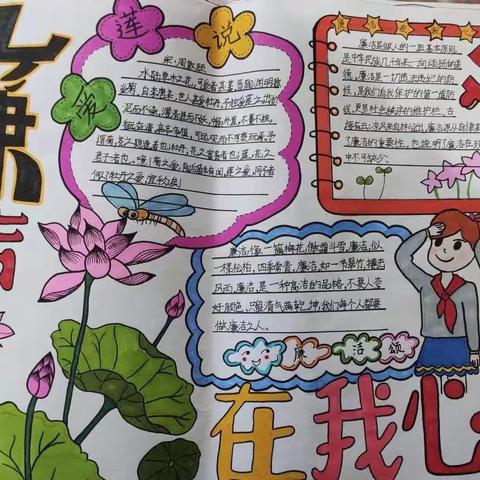 廉洁
在我心
爱莲说
宋·周敦颐
水陆草木之花,可爱者甚蕃。晋陶渊明独
爱菊。自李唐来,世人甚爱牡丹。予独爱莲之出淤
泥而不染,濯清涟而不妖,中通外直,不蔓不枝,
香远益清,亭亭净植,可远观而不可亵玩焉。予
谓菊,花之隐逸者也;牡丹,花之富贵者也;莲,花之
君子者也。噫!菊之爱,陶后鲜有闻;莲之爱,同予者
何人?牡丹之爱,宜乎众矣!
廉洁
廉洁是做人的一基本原则,
是中华民族几千年来一向颂扬的道
德,廉洁是一切
线,更是社会秩序的维护栏。古
了廉洁的重要性,也说明了廉洁在
中不可缺少。
廉洁,像一梅花,傲雪斗霜,廉洁,似
一棵松柏,四季常青,廉洁,如一节翠竹,搏击
风雨,廉洁,是一种高洁的品格,不要人夸
好颜色,只留清气满乾坤,我们每个人都要
做廉洁之人。
廉洁颂